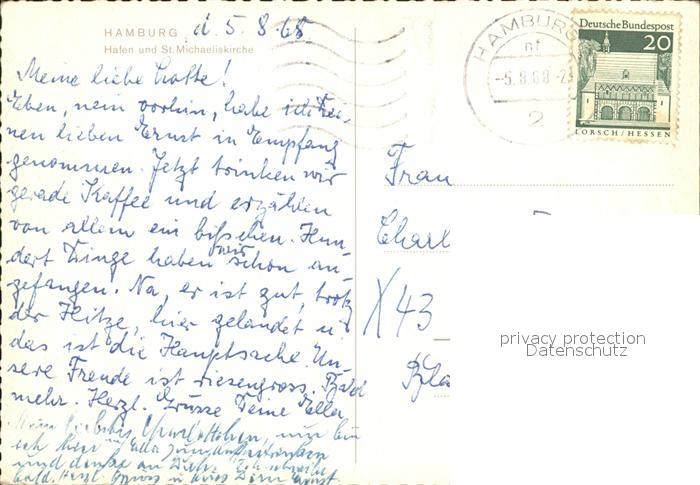 HAMBURG d. 5.8.68
Hafen und St. Michaeliskirche
Meine liebe Lotte!
Eben, nein vorhin, habe ich Dei-
nen lieben Ernst in Empfang
genommen. Jetzt trinken wir
gerade Kaffee und erzählen
von allem ein bißchen. Hun-
dert Dinge haben wir schon an-
gefangen. Na, er ist gut, trotz
der Hitze, hier gelandet u.
das ist die Hauptsache. Un-
sere Freude ist riesengross. Bald
mehr. Herzl. Grüsse Deine Ella
Mein liebstes Charlottchen, nun bin
ich hier in Ella
und denke an Dich.
bald. Herzl. Gruss u. Dein Ernst
HAMBURG
-5.8.68-2
2
Deutsche Bundespost
20
LORSCH/HESSEN
Frau
Charl
X 43
Bla
privacy protection
Datenschutz